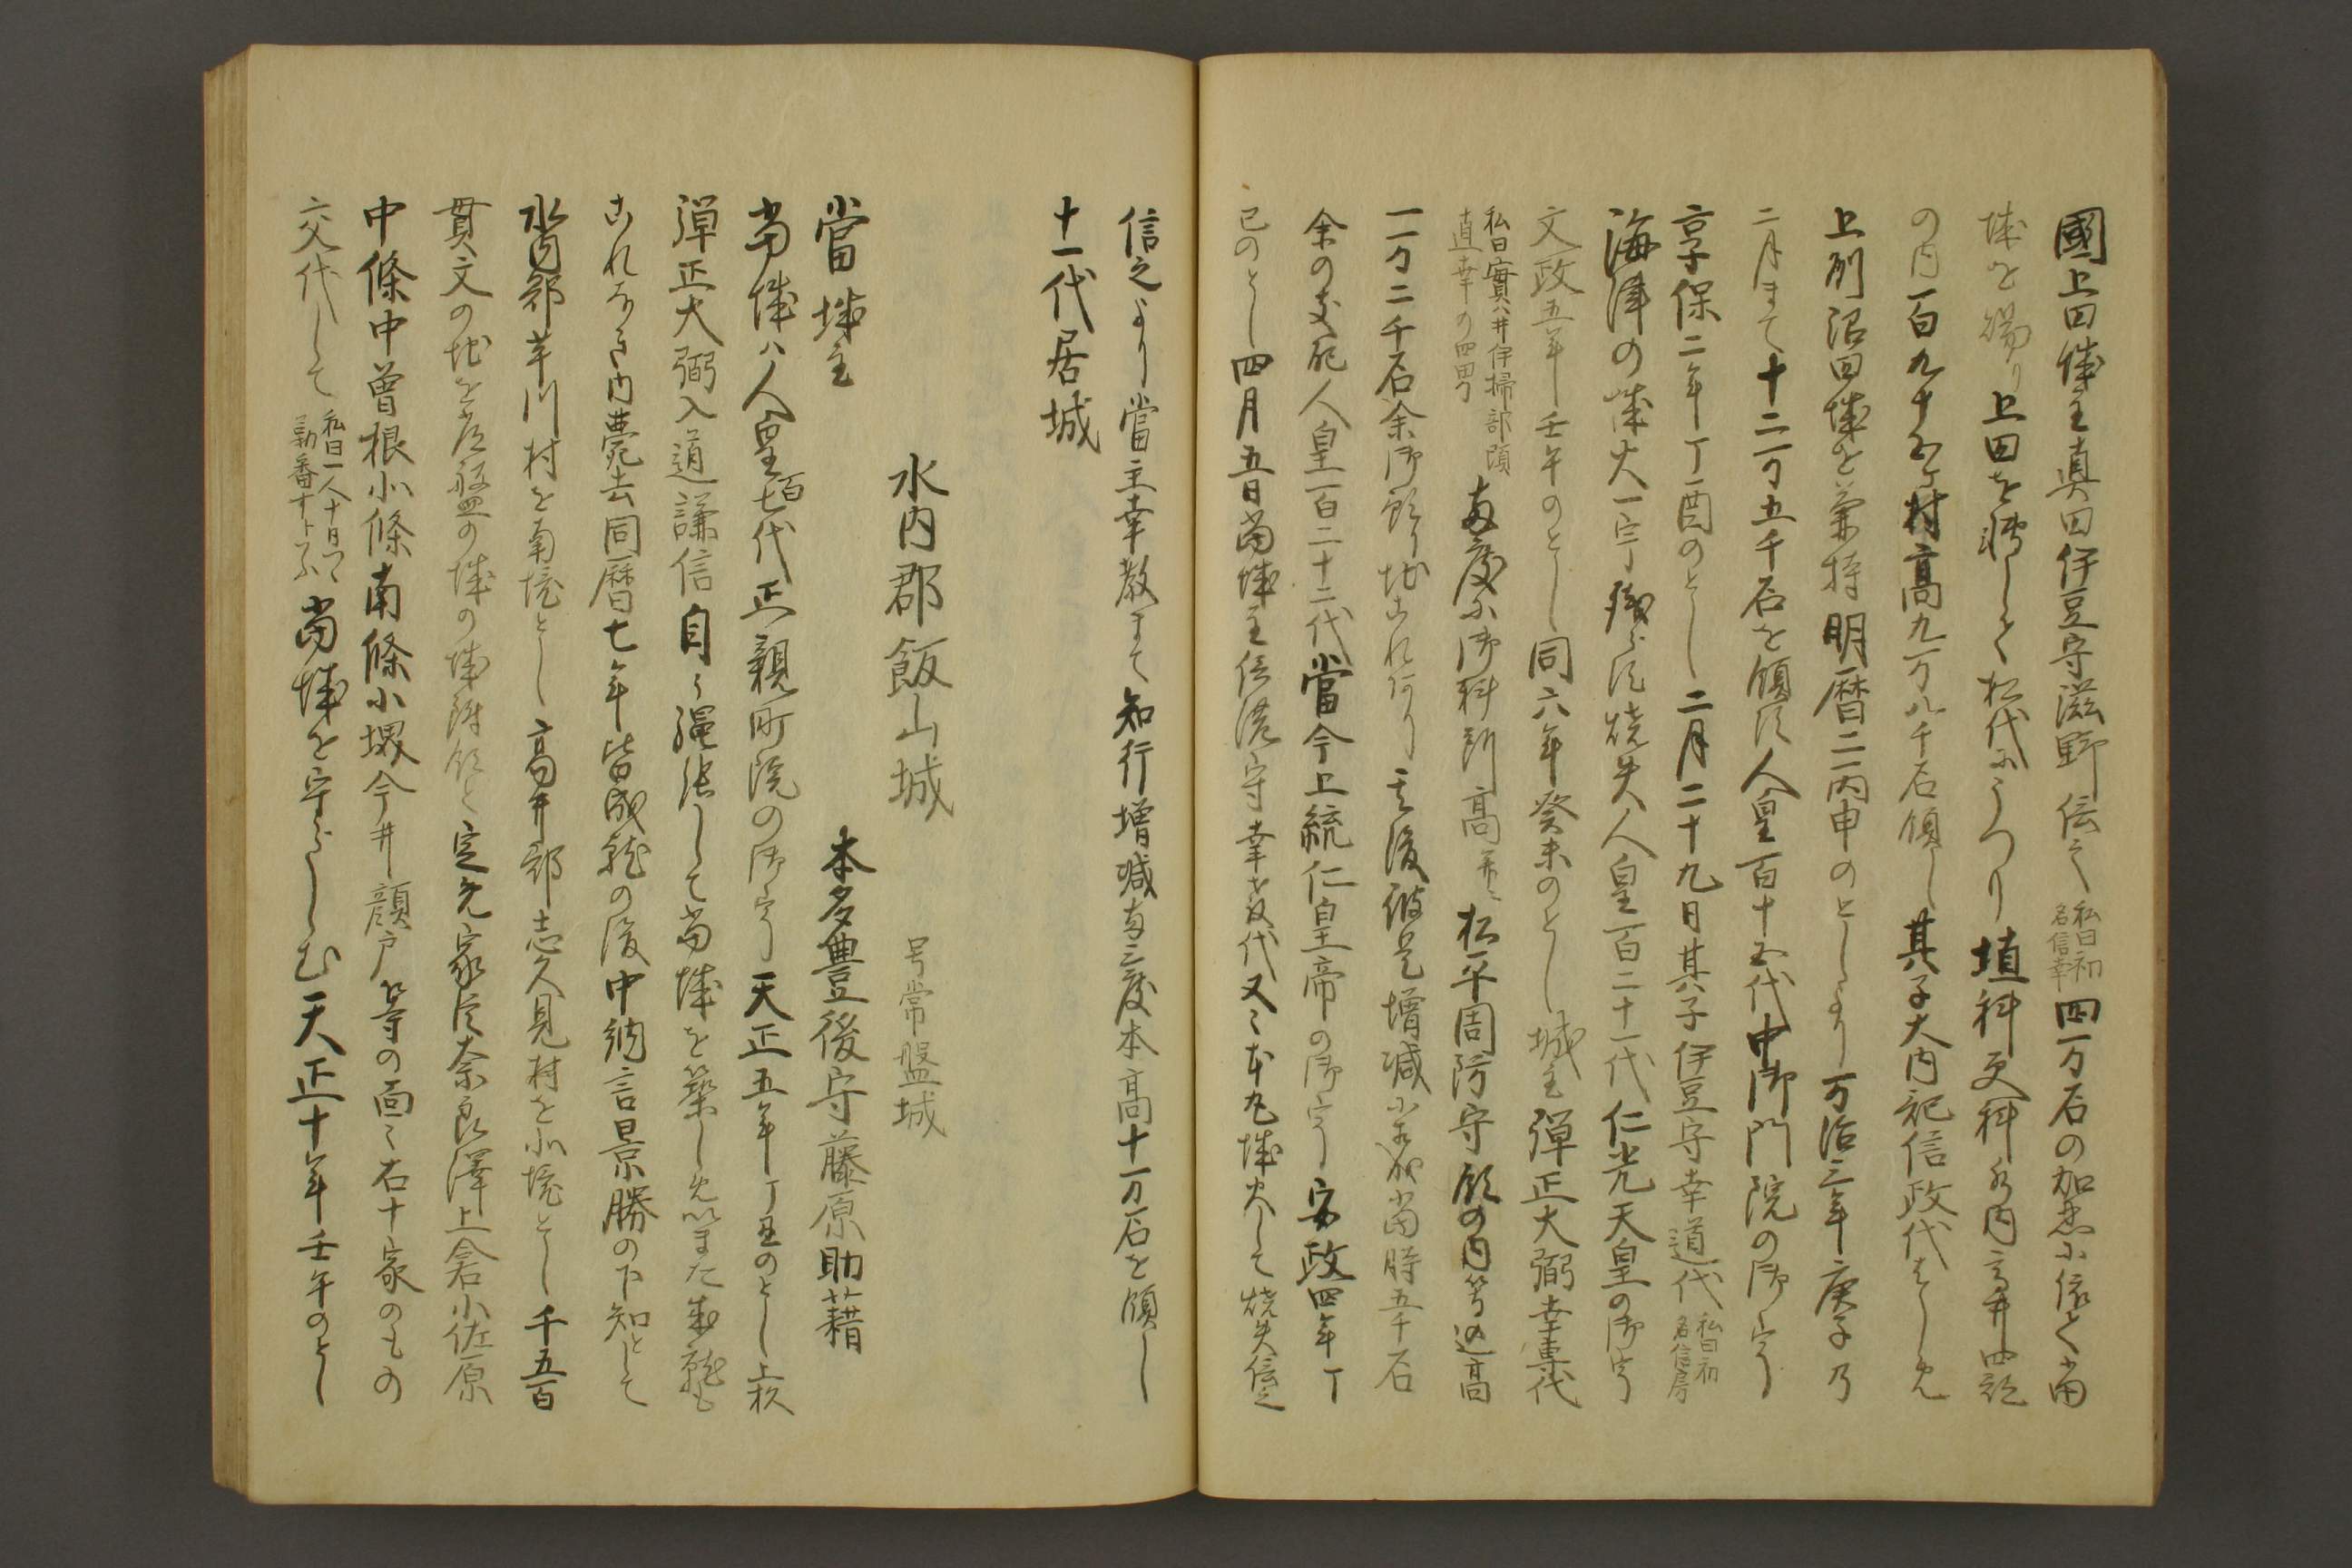 國上田城主真田伊豆守滋野信之私曰初名信幸四万石の加恩に依て当
城を賜り上田を轉して松代にうつり埴科更科水内高井四郡
の内一百九十五ケ村高九万八千石領し其子大内記信政代はしめ
上刕沼田城を兼持明暦二丙申のとしより万治三年庚子乃
二月まて十二万五千石を領す人皇百十五代中御門院の御宇
享保二年丁酉のとし二月二十九日其子伊豆守幸道代私曰初名信房
海津の城火一宇残らす焼失人皇一百二十一代仁光天皇の御宇
文政五年壬午のとし同六年癸未のとし城主弾正大弼幸専代
私曰實ハ井伊掃部頭直幸の四男両度に御料所高井ニ松平周防守領の内等込高
一万二千石余御預り地これあり其後彼是増減に当時五千石
余の支配人皇一百二十二代當今上統仁皇帝の御宇安政四年丁
巳のとし四月五日当城主信濃守幸教代又々本丸城火して焼失信之
信之より當主幸教まて知行増減両三度本高十万石を領し
十一代居城
水内郡飯山城　号常盤城
當城主　本多豊後守藤原助籍
当城ハ人皇百七代正親町院の御宇天正五年丁丑のとし上杉
弾正大弼入道謙信自ら縄張して当城を築しめいまた成就も
これなき内薨去同暦七年皆成就の後中納言景勝の下知として
水内郡芋川村を南境とし高井郡志久見村を北境とし千五百
貫文の地を常盤の城の城附領と定め家臣奈良澤上倉小佐原
中條中曽根小條南條小堺今井顔戸等の面々右十家のもの
交代して私曰一人十日ツヽ勤番すト云当城を守らしむ天正十年壬午のとし